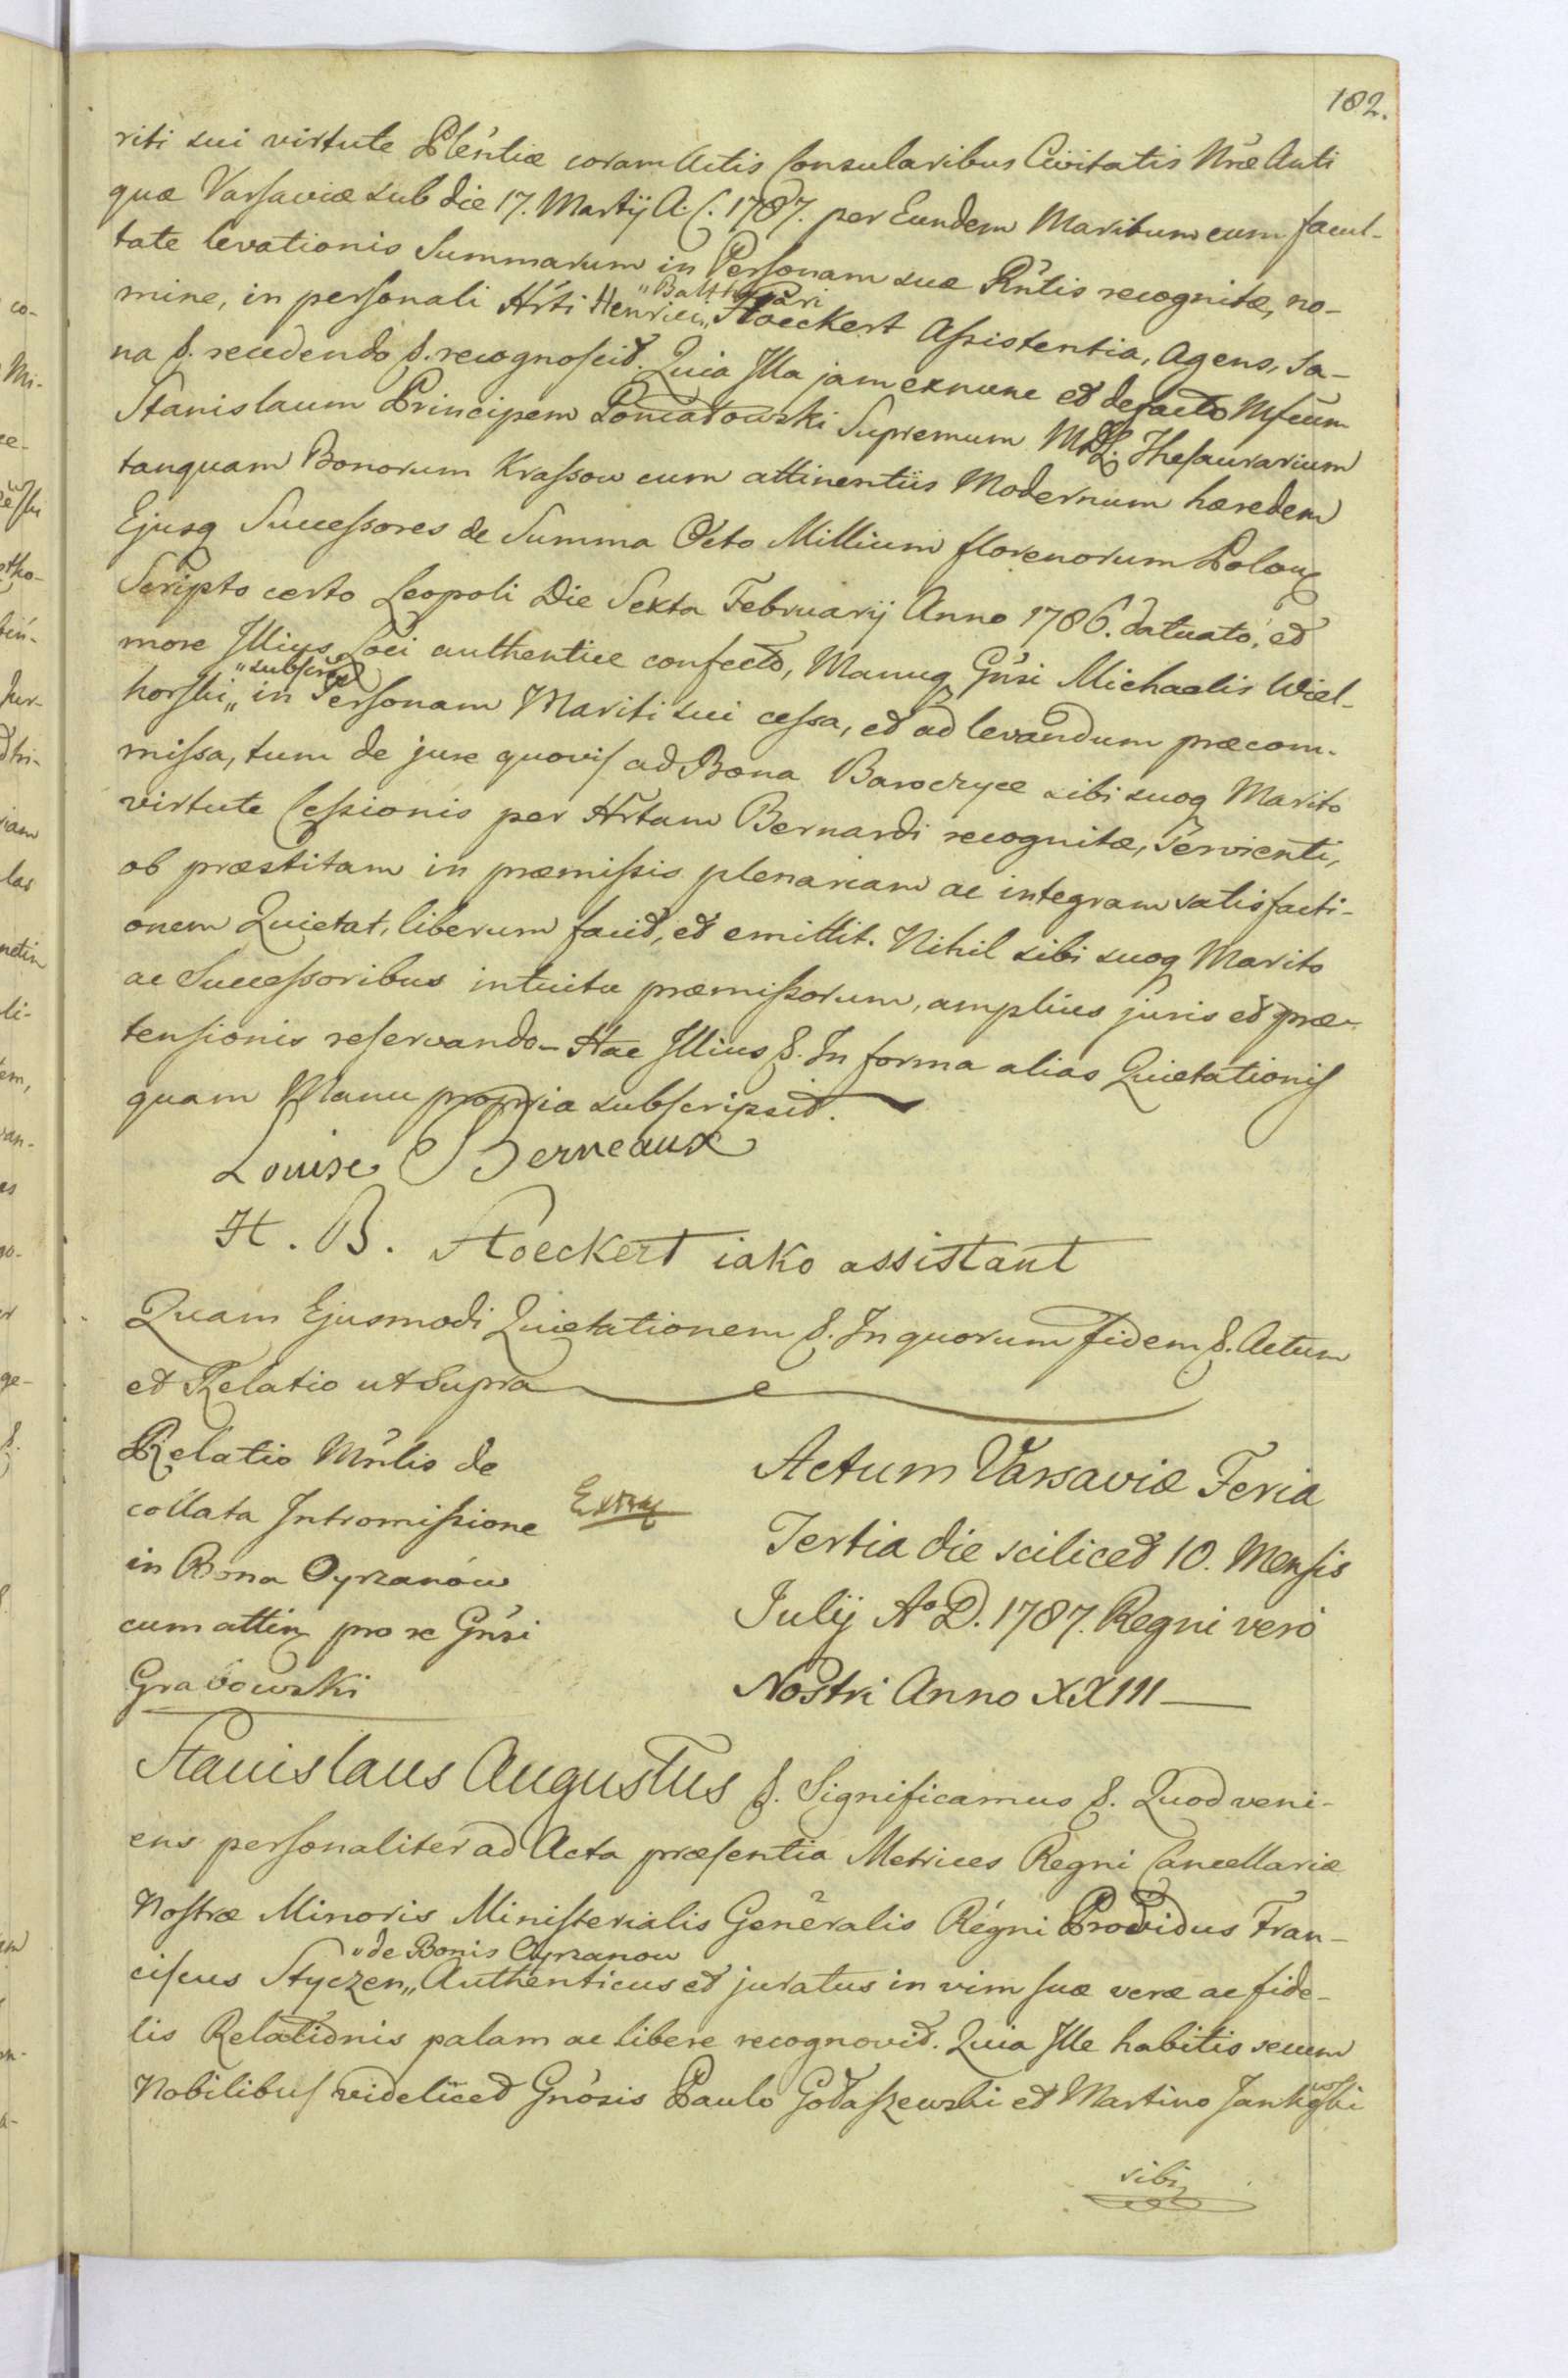 182.
riti sui virtute Plẽntiæ coram Actis Consularibus Civitatis Nræ Anti
quæ Varsaviæ sub die 17. Martij A. C. 1787. per Eundem Maritum cum facul-
tate levationis Summarum in Personam suæ Pñtis recognitæ, no-
mine, in personali Hŕti Henrici „ Stoeckert Assistentia, Agens, Sa-
„Balthasari
na &. recedendo &. recognoscit. Quia Illa jam exnunc et defacto Msicum
Stanislaum Principem Poniatowski Supremum M.D.L. Thesaurarium
tanquam Bonorum Krassow cum attinentiis Modernum hæredem
Ejusq Successores de Summa Octo Millium florenorum Polon
Scripto certo Leopoli Die Sexta Februarij Anno 1786. datuato, et
more Illius Loci authentice confecto, Manuq Gñsi Michaelis Wiel-
horski „ in Personam Mariti sui cessa, et ad levandum præcom-
„subscript
missa, tum de jure quovis ad Bona Baroczyce sibi suoq Marito
virtute Cessionis per Hŕtam Bernardi recognitæ, servienti,
ob præstitam in præmissis plenariam ac integram satisfacti-
onem Quietat, liberum facit, et emittit. Nihil sibi suoq Marito
ac Successoribus intuitu præmissorum, amplius juris et præ-
tensionis reservando – Hac Illius &. In forma alias Quietationis
quam Manu propria subscripsit.
Louise Berneaux
H. B. Stoeckert iako assistant
Quam Ejusmodi Quietationem &. In quorum fidem &. Actum
et Relatio ut Supra
Relatio Mrlis de
collata Intromissione
in Bona Oyrzanów
cum attin pro re Gñsi
Grabowski
Extra
Actum Varsaviæ Feria
Tertia die scilicet 10. Mensis
Julij Aº D. 1787. Regni verò
Nostri Anno XXIII
Stanislaus Augustus &. Significamus &. Quod veni-
ens personaliter ad Acta præsentia Metrices Regni Cancellariæ
Nostræ Minoris Ministerialis Generalis Regni Providus Fran-
„de Bonis Oyrzanow
ciscus Styczen „ Authenticus et juratus in vim suæ veræ ac fide-
lis Relationis palam ac libere recognovit. Quia Ille habitis secum
Nobilibus videlicet Gñosis Paulo Gołaszewski et Martino Jankowski
sibi